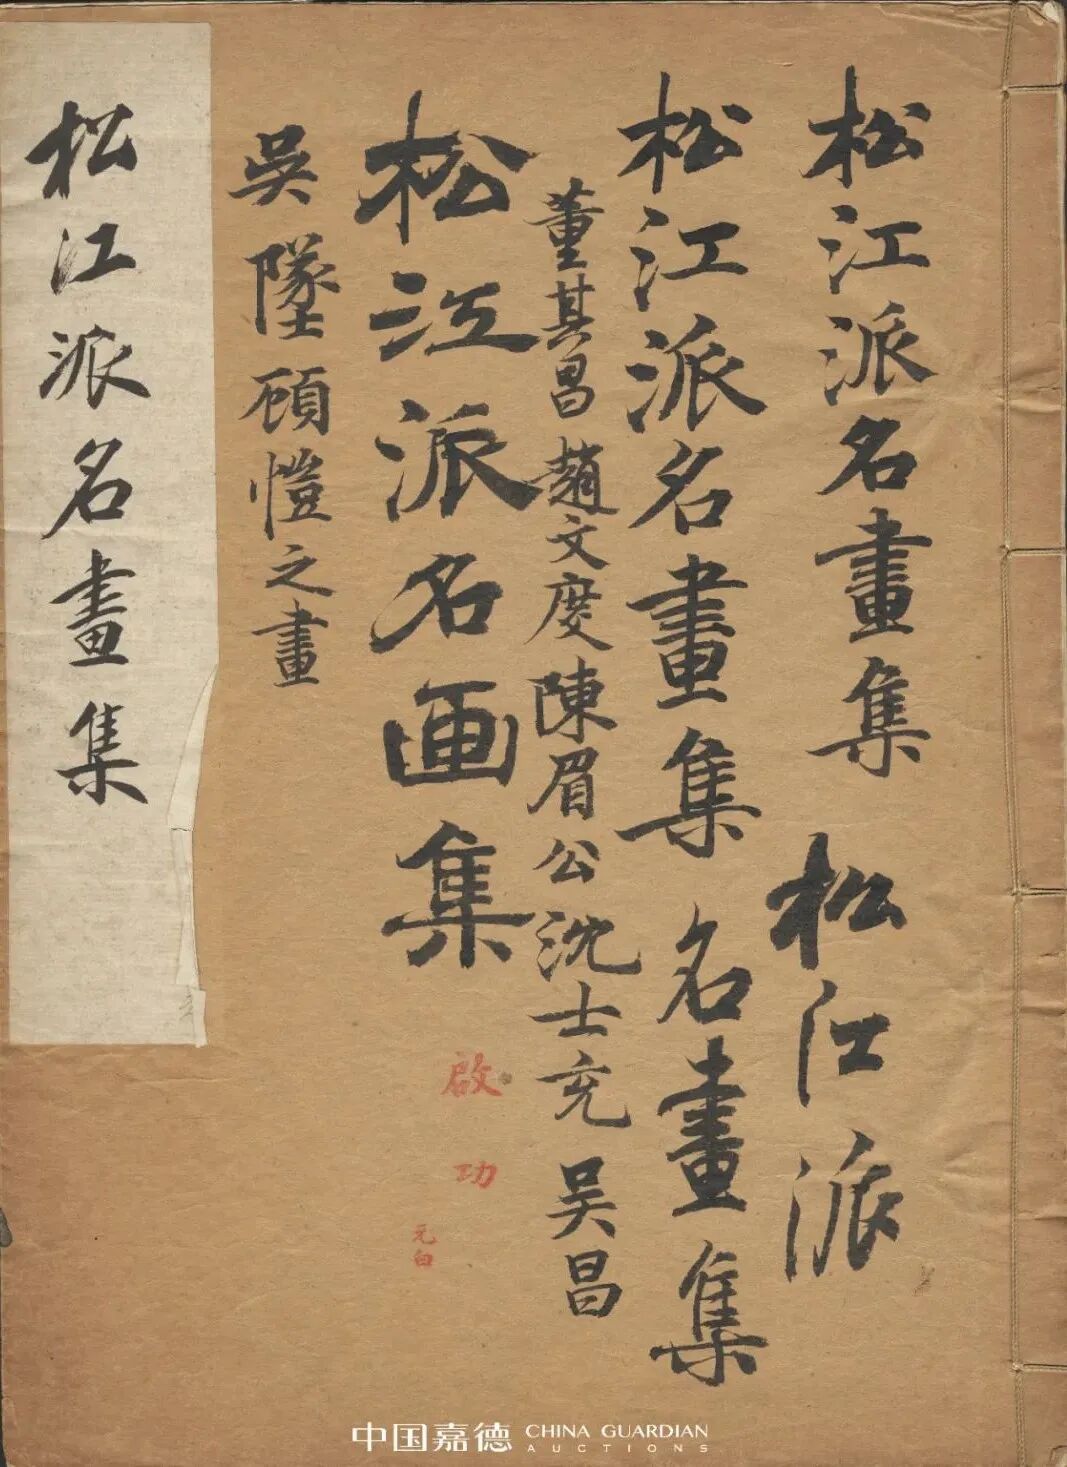 松江派名畫集 松江派
松江派名畫集 名畫集
董其昌 趙文度 陳眉公 沈士充 吴昌
松江派名画集
吳墜顧愷之畫
松江派名畫集
啟功
元白
中国嘉德 CHINA GUARDIAN
AUCTIONS